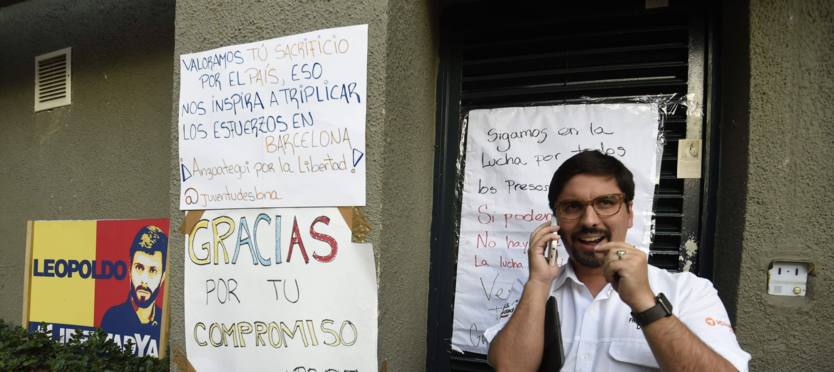 VALORAMOS TÚ SACRIFICIO
POR EL PAÍS, ESO
NOS INSPIRA A TRIPLICAR
LOS ESFUERZOS EN
BARCELONA
¡Anzoategui por la Libertad!
@juventudeslona
GRACIAS
POR TU
COMPROMISO
LEOPOLDO
YA
Sigamos en la
Lucha por todos
los Presos
Si podem
No hay
La lucha